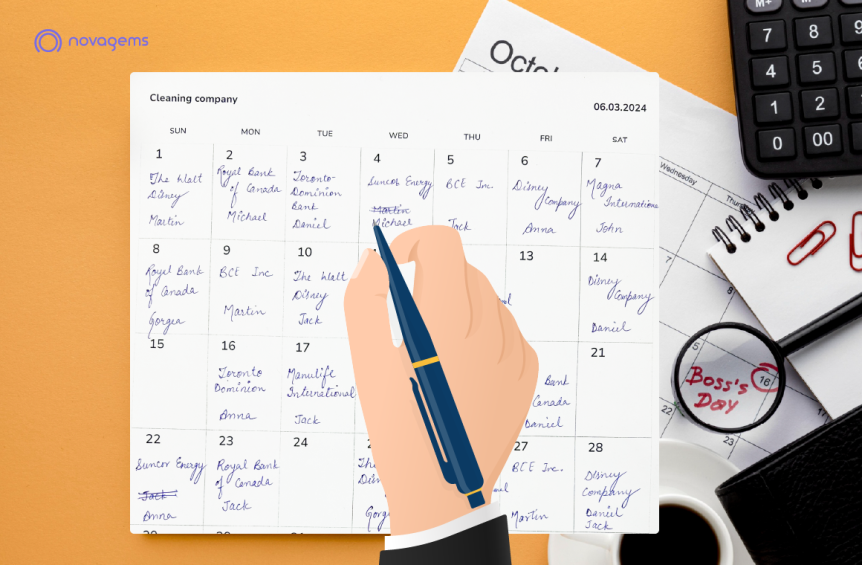 novagems
Octo
Cleaning company
06.03.2024
SUN MON TUE WED THU FRI SAT
1 2 3 4 5 6 7
The Walt
Disney
Martin
Royal Bank
of Canada
Michael
Toronto-
Dominion
Bank
Daniel
Suncor Energy
Martin
Michael
BCE Inc.
Jack
Disney
Company
Anna
Magna
Internationa
John
8 9 10 13 14
Royal Bank
of Canada
Gorgea
BCE Inc
Martin
The Walt
Disney
Jack
Disney
Company
Daniel
15 16 17 21
Toronto
Dominion
Anna
Manulife
International
Jack
Bank
Canada
Daniel
22 23 24 27 28
Suncor Energy
Jack
Anna
Royal Bank
of Canada
Jack
BCE Inc.
Martin
Disney
Company
Daniel
Jack
M+
7 8 9
4 5 6
1 2 3
0 00
Wednesday
Thur
7
8
5
16
Boss's
Day
22
23
17